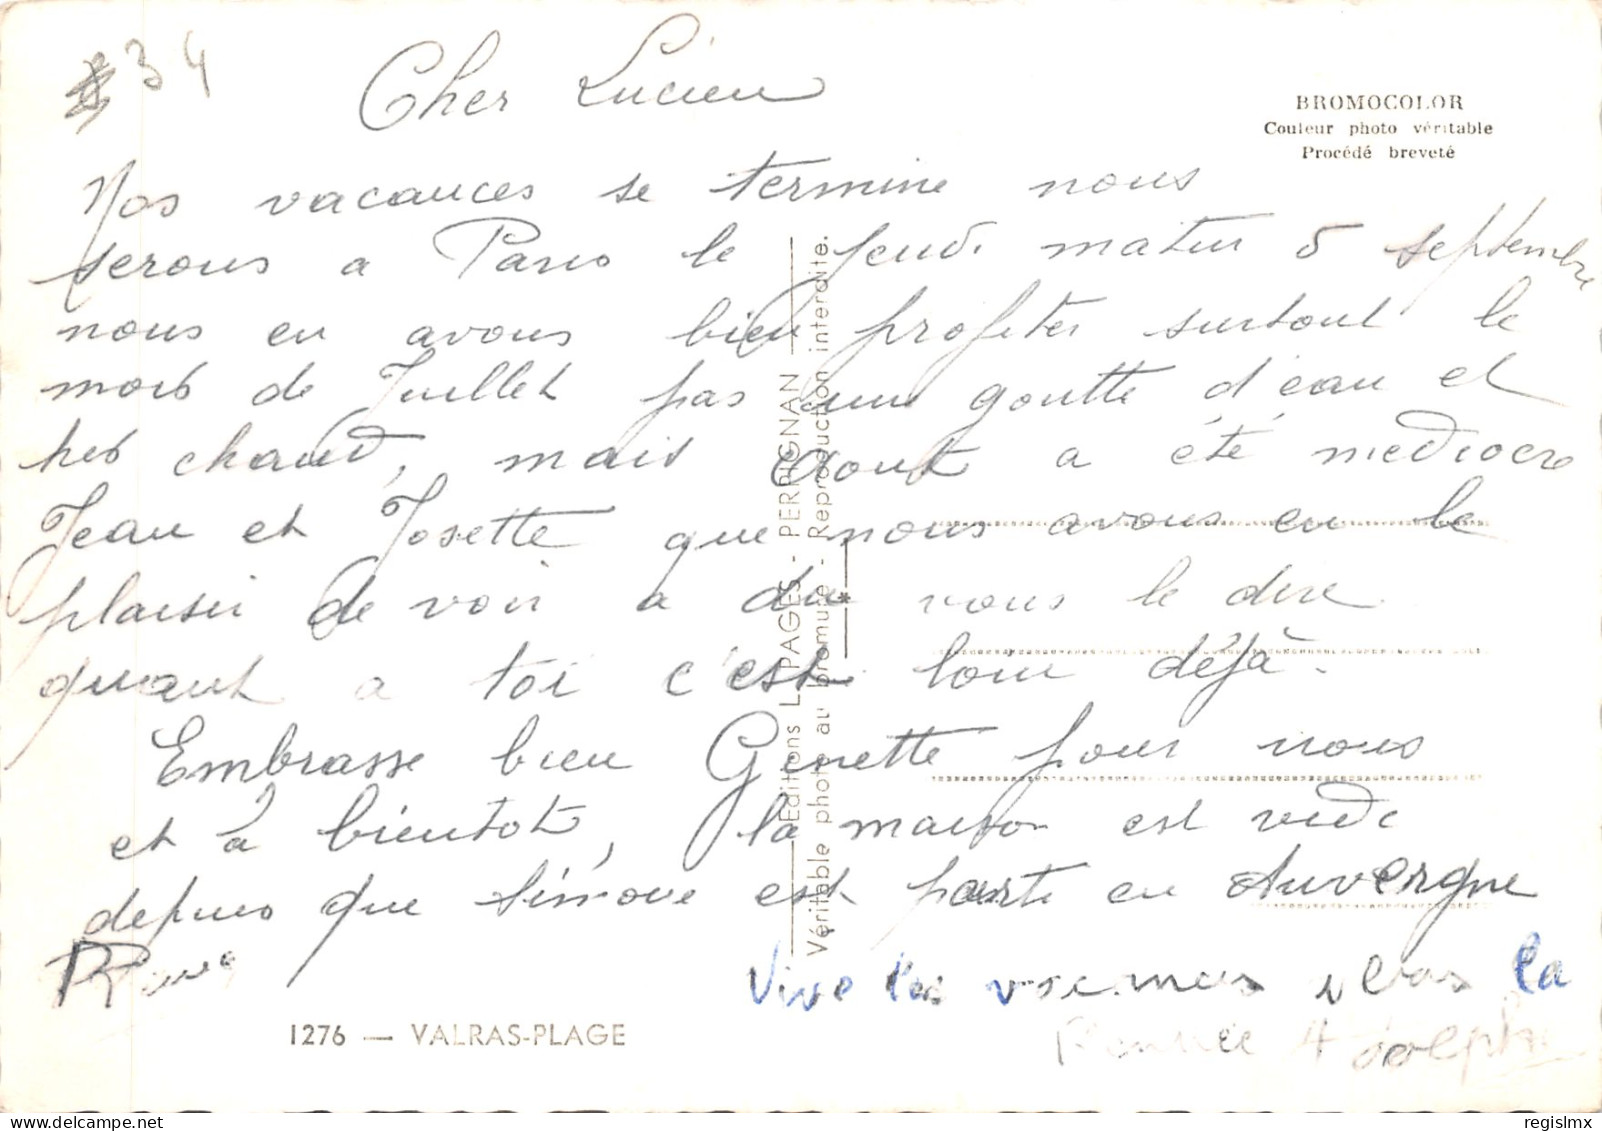 34
Cher Lucien
BROMOCOLOR
Couleur photo véritable
Procédé breveté
Nos vacances se termine nous
serons a Paris le jeudi matin 5 septembre
nous en avons bien profiter surtout le
mois de Juillet pas une goutte d'eau et
tres chaud, mais aout a été mediocre
Jean et Josette que nous avons eu le
plaisir de voir a du vous le dire
quant a toi c'est loin déjà.
Embrasse bien Ginette pour nous
et à bientot, la maison est vide
depuis que Simone est partie en Auvergne
Vive les la
Renée Adolphe
1276 — VALRAS-PLAGE
Editions L. PAGES - PERPIGNAN
Véritable photo au bromure - Reproduction interdite.
delcampe.net
regislmx